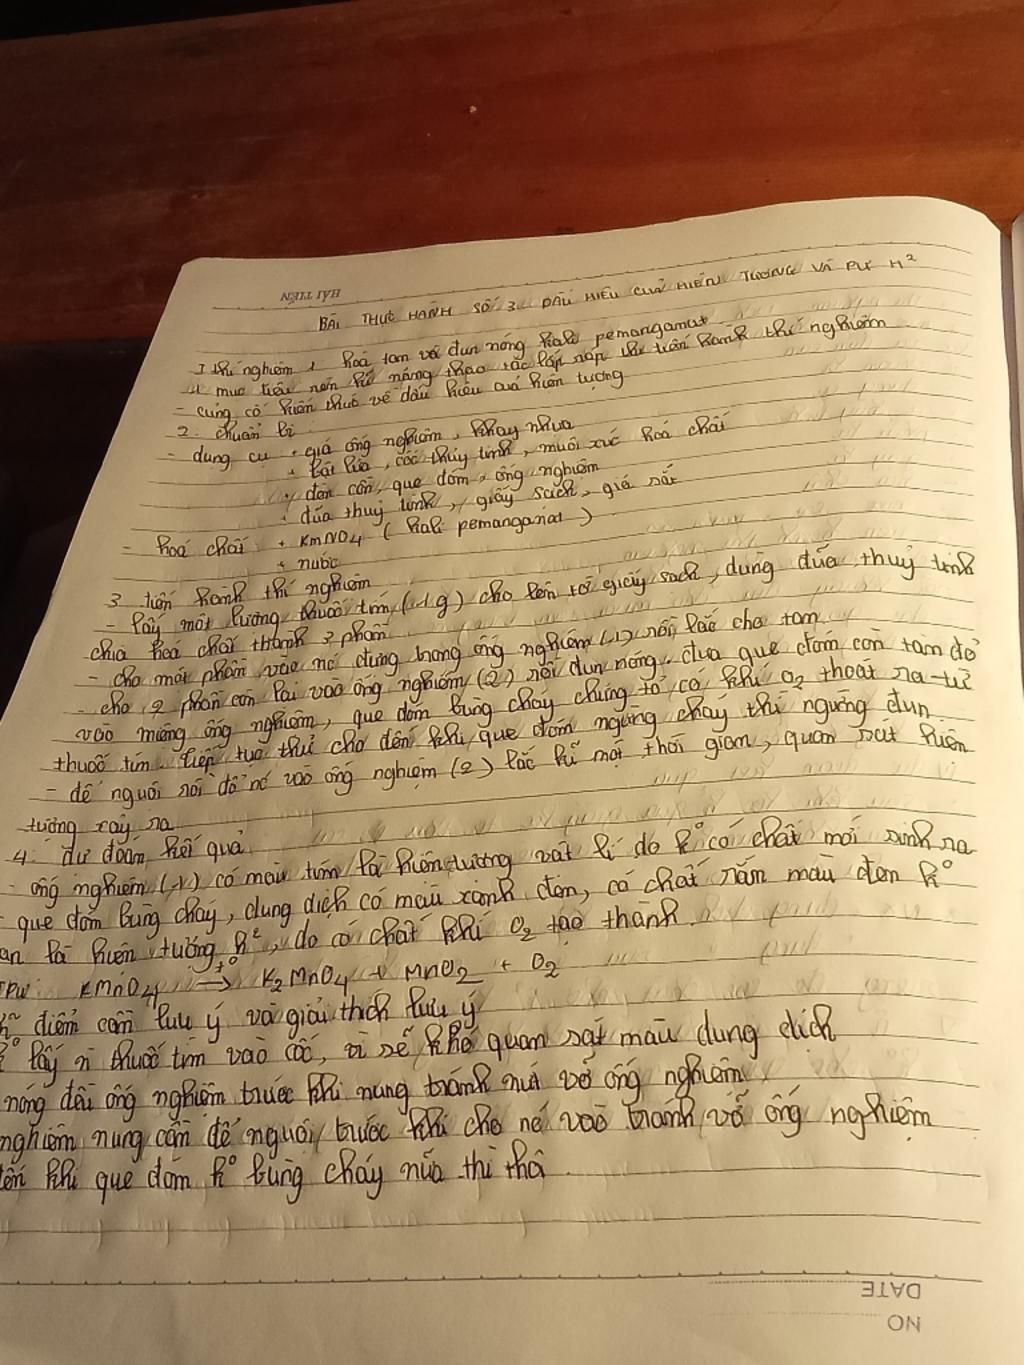 HẢI TIẾN
BÀI THỰC HÀNH SỐ 3 DẤU HIỆU CỦA HIỆN TƯỢNG VÀ PƯ H²
I thí nghiệm 1 hoà tan và đun nóng kali pemanganat
1 mục tiêu rèn kĩ năng thao tác lắp ráp tiến hành thí nghiệm
- củng cố kiến thức về dấu hiệu của hiện tượng
2. chuẩn bị
- dụng cụ + giá ống nghiệm, khay nhựa
+ bật lửa, cốc thuỷ tinh, muôi xúc hoá chất
+ đèn cồn, que đóm, ống nghiệm
+ đũa thuỷ tinh, giấy sạch, giá sắt
- hoá chất + KMNO4 ( kali pemanganat )
+ nước
3 tiến hành thí nghiệm
- lấy một lượng thuốc tím (1g) cho lên tờ giấy sạch, dùng đũa thuỷ tinh
chia hoá chất thành 3 phần
- cho một phần vào nó đựng trong ống nghiệm (1) rồi lắc cho tan
- cho 2 phần còn lại vào ống nghiệm (2) rồi đun nóng. đưa que đóm còn tàn đỏ
vào miệng ống nghiệm, que đóm bùng cháy chứng tỏ có khí O2 thoát ra từ
thuốc tím. tiếp tục thử cho đến khi que đóm ngừng cháy thì ngừng đun
- để nguội rồi đổ nó vào ống nghiệm (2) lắc kĩ một thời gian, quan sát hiện
tượng xảy ra
4. dự đoán kết quả
- ống nghiệm (1) có màu tím là hiện tượng vật lí do k° có chất mới sinh ra
- que đóm bùng cháy, dung dịch có màu xanh đen, có chất rắn màu đen k°
an là hiện tượng h², do có chất khí O2 tạo thành
PTPƯ: KMnO4 t°→ K2MnO4 + MnO2 + O2
điểm cần lưu ý và giải thích lưu ý
k° lấy n thuốc tím vào cốc, vì sẽ khó quan sát màu dung dịch
nóng đều ống nghiệm trước khi nung tránh nứt vỡ ống nghiệm
nghiệm nung cần để nguội, trước khi cho nó vào tránh vỡ ống nghiệm
đến khi que đóm k° bùng cháy nữa thì thôi
DATE
NO